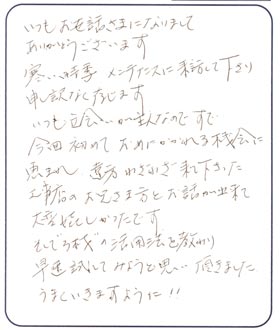 いつもお世話さまになりまして
ありがとうございます
寒い時季 メンテナンスに来訪して下さり
申訳なく存じます
いつも立会いが主人なのですで
今回初めておめにかかれる機会に
恵まれ 遠方わざわざ来て下さった
工事店のお兄さま方とお話が出来て
大変嬉しかったです
そして 活用法を教わり
早速試してみようと思い 頂きました
うまくいきますように!!